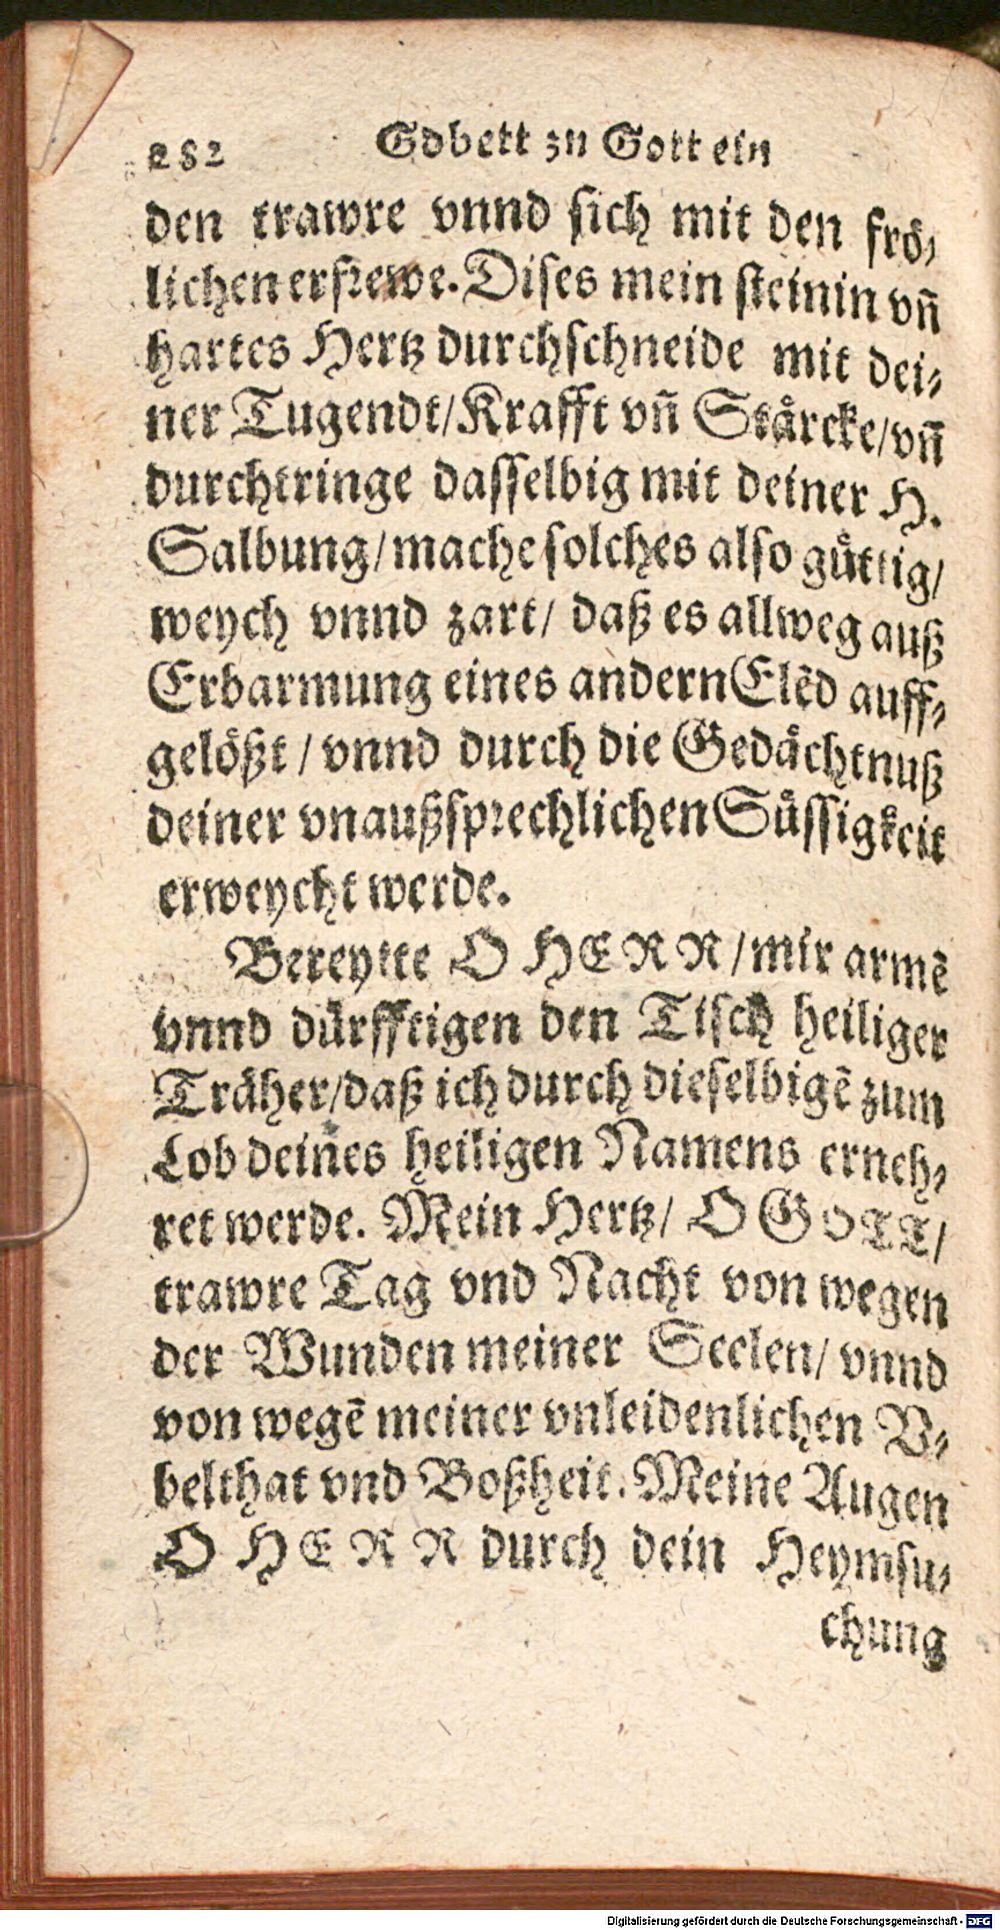 282 Gdbett zu Gott ein
den trawre vnnd sich mit den frö-
lichen erfrewe. Dises mein steinin vñ
hartes Hertz durchschneide mit dei-
ner Tugendt/ Krafft vñ Stårcke/ vñ
durchtringe dasselbig mit deiner H.
Salbung/ mache solches also gůttig/
weych vnnd zart/ daß es allweg auß
Erbarmung eines andern Elẽd auff-
gelößt/ vnnd durch die Gedåchtnuß
deiner vnaußsprechlichen Sůssigkeit
erweycht werde.
Bereytte O HERR/ mir armẽ
vnnd důrfftigen den Tisch heiliger
Tråher/ daß ich durch dieselbigẽ zum
Lob deines heiligen Namens erneh-
ret werde. Mein Hertz/ O GOTT/
trawre Tag vnd Nacht von wegen
der Wunden meiner Seelen/ vnnd
von wegẽ meiner vnleidenlichen V-
belthat vnd Boßheit. Meine Augen
O HERR durch dein Heymsu-
chung
Digitalisierung gefördert durch die Deutsche Forschungsgemeinschaft - DFG